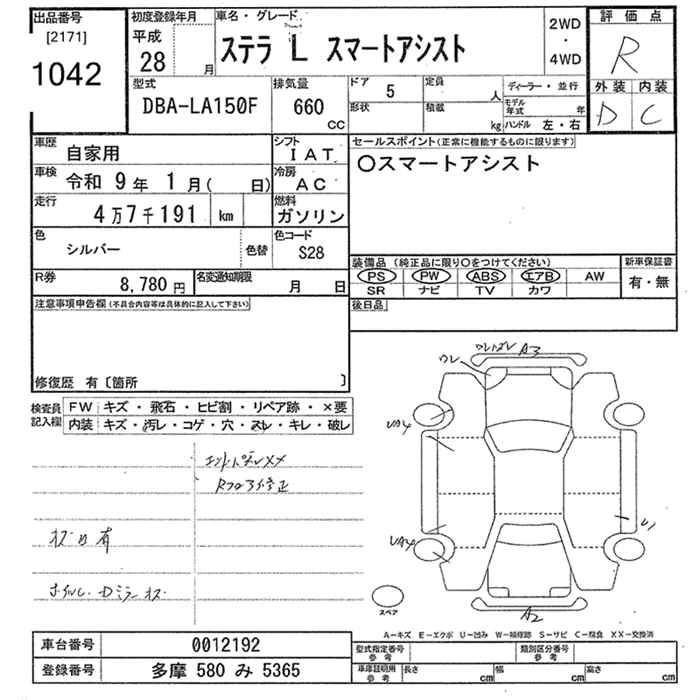 出品番号
[2171]
1042
初度登録年月
平成
28 月
車名・グレード
ステラ L スマートアシスト
2WD
・
4WD
評価点
R
外装 内装
D C
型式
DBA-LA150F
排気量
660
CC
ドア 5
形状
定員 人
積載 kg
ディーラー・並行
モデル年式 年
ハンドル 左・右
車歴 自家用
シフト IAT
車検 令和 9年 1月( 日)
冷房 AC
走行 4万7千191 km
燃料 ガソリン
色 シルバー 色替
色コード S28
R券 8,780円
名変通知期限 月 日
セールスポイント(正常に機能するものに限ります)
○スマートアシスト
装備品 (純正品に限り○をつけてください)
PS PW ABS エアB AW
SR ナビ TV カワ
新車保証書
有・無
後日品
注意事項申告欄(不具合内容等は具体的に記入して下さい)
修復歴 有〔箇所 〕
検査員記入欄
FW キズ・飛石・ヒビ割・リペア跡・×要
内装 キズ・汚レ・コゲ・穴・スレ・キレ・破レ
R フロア修正
キズ凹有
ホイル、Dミラーキズ
ワレ
A3
UA4
UA4
U1
A2
スペア
A-キズ E-エクボ U-凹み W-補修跡 S-サビ C-腐食 XX-交換済
車台番号 0012192
登録番号 多摩 580 み 5365
型式指定番号
参考
類別区分番号
参考
車庫証明用
参考
長さ cm 幅 cm 高さ cm